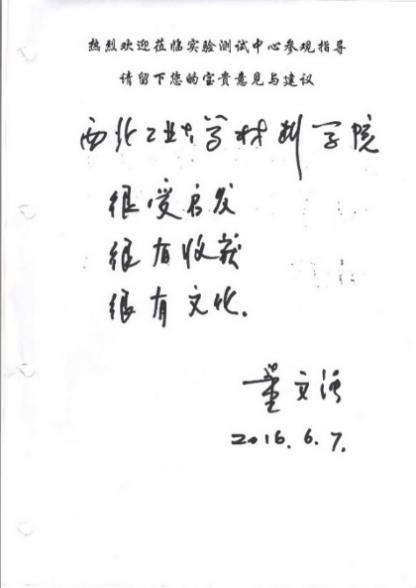 热烈欢迎莅临实验测试中心参观指导
请留下您的宝贵意见与建议
西北工业大学材料学院
很受启发
很有收获
很有文化.
董文强
2016.6.7.